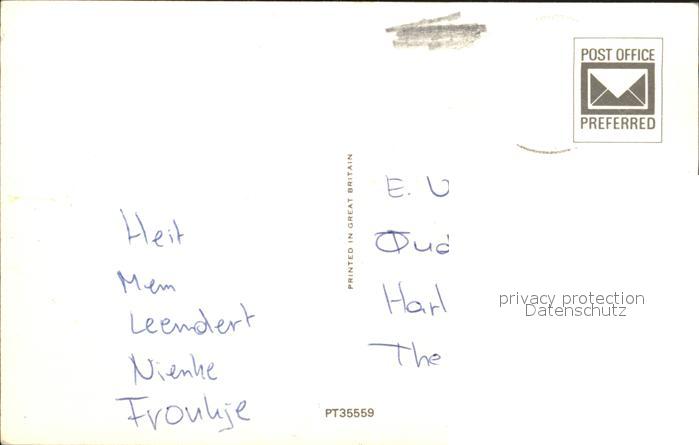 POST OFFICE
PREFERRED
PRINTED IN GREAT BRITAIN
Heit
Mem
Leendert
Nienke
Froukje
E. U
Oud
Harl
The
privacy protection
Datenschutz
PT35559